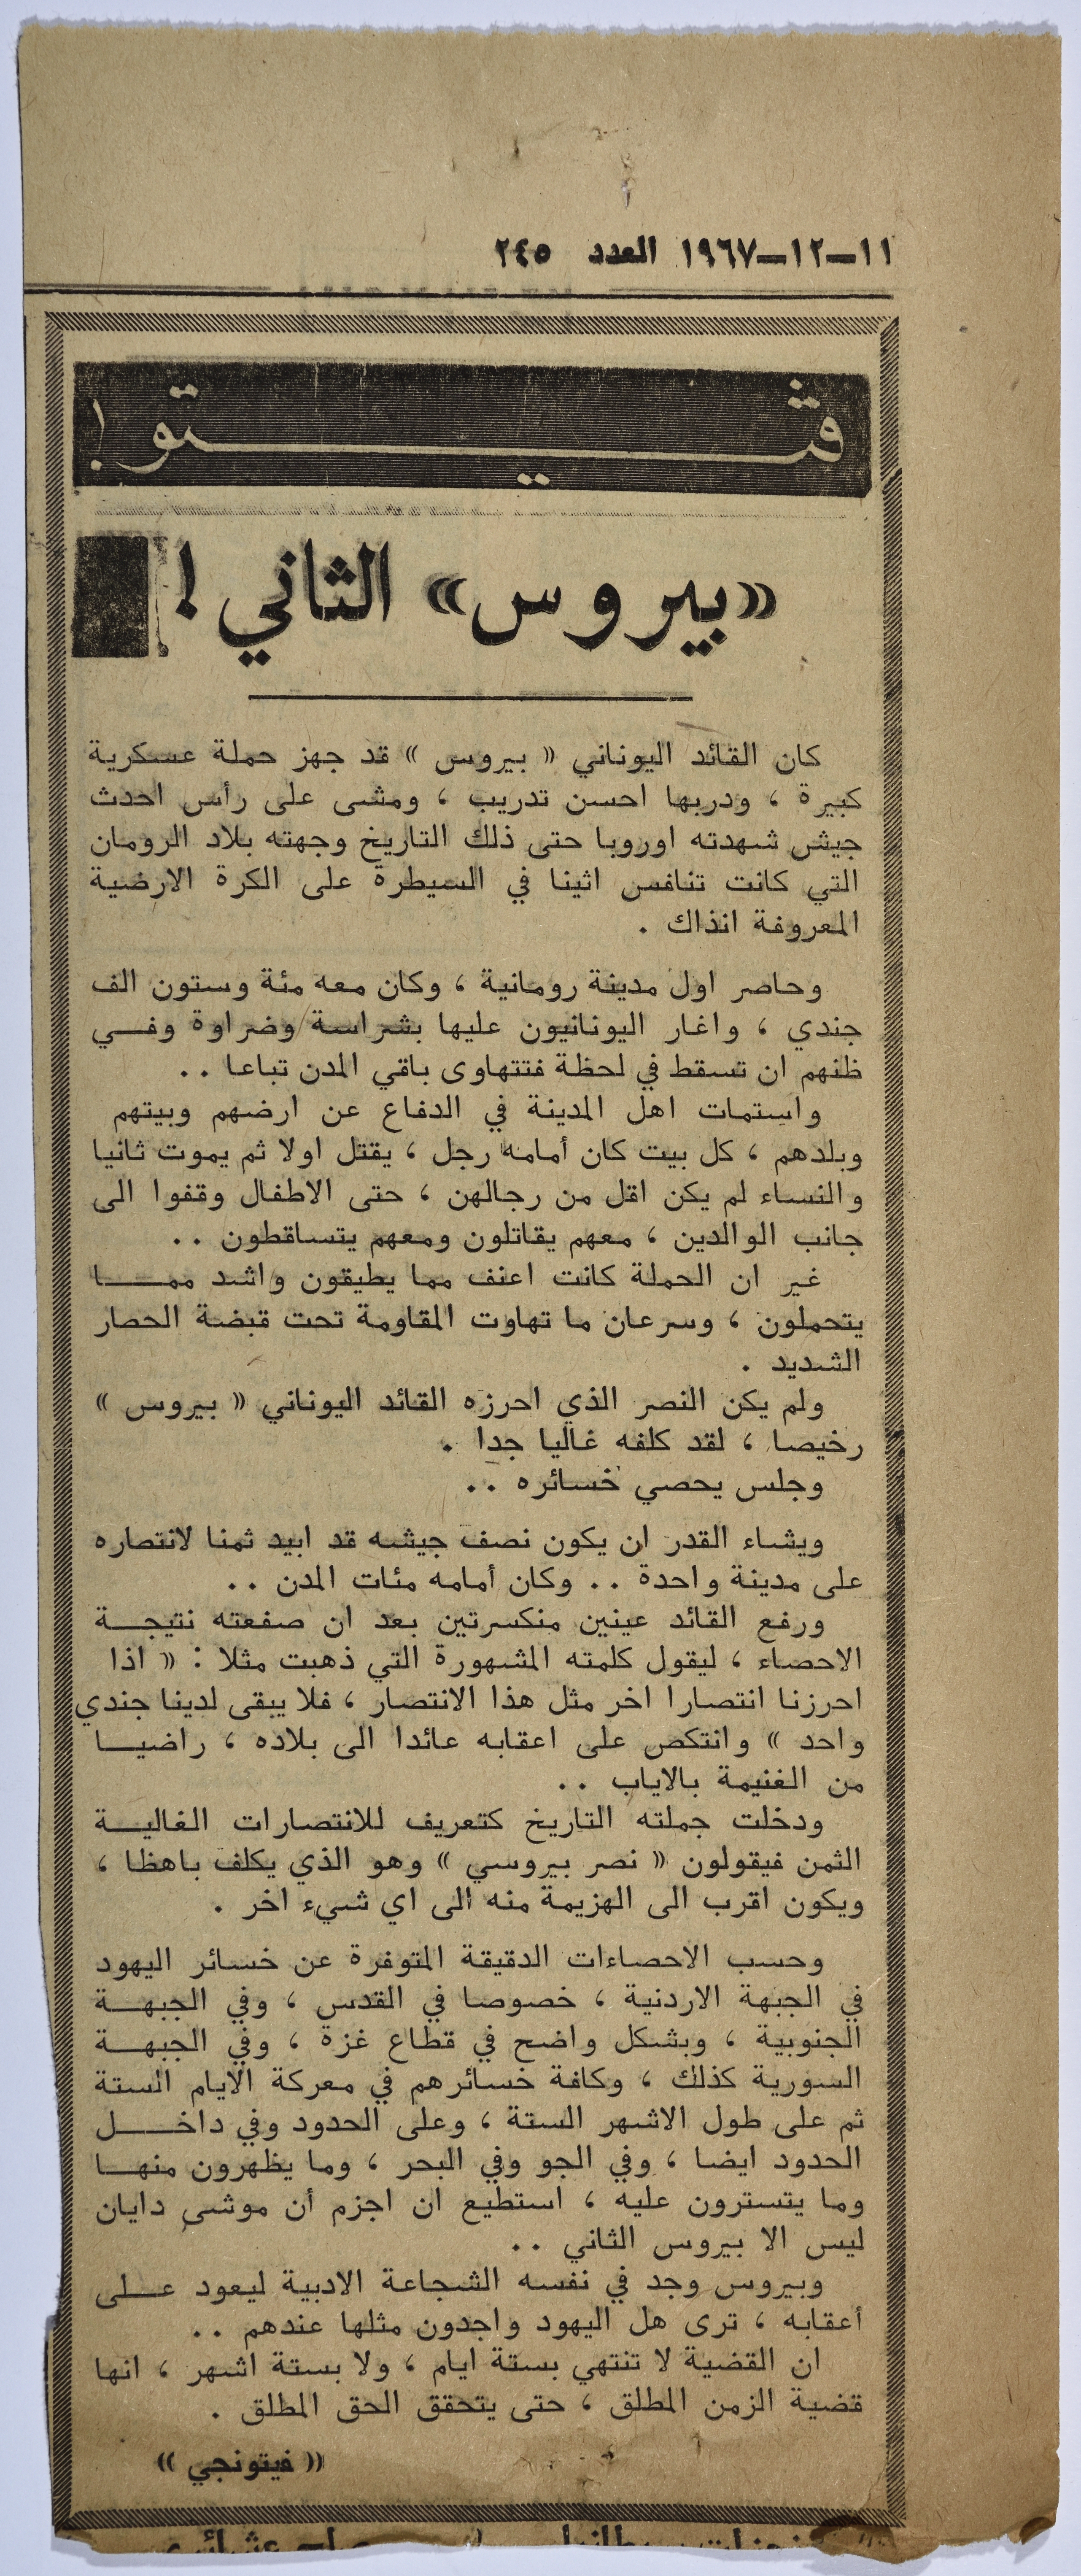 ١١-١٢-١٩٦٧ العدد ٢٤٥
ڤيتو !
«بيروس» الثاني !
كان القائد اليوناني « بيروس » قد جهز حملة عسكرية
كبيرة ، ودربها احسن تدريب ، ومشى على رأس احدث
جيش شهدته اوروبا حتى ذلك التاريخ وجهته بلاد الرومان
التي كانت تنافس اثينا في السيطرة على الكرة الارضية
المعروفة انذاك .
وحاصر اول مدينة رومانية ، وكان معه مئة وستون الف
جندي ، واغار اليونانيون عليها بشراسة وضراوة وفي
ظنهم ان تسقط في لحظة فتتهاوى باقي المدن تباعا . .
واستمات اهل المدينة في الدفاع عن ارضهم وبيتهم
وبلدهم ، كل بيت كان أمامه رجل ، يقتل اولا ثم يموت ثانيا
والنساء لم يكن اقل من رجالهن ، حتى الاطفال وقفوا الى
جانب الوالدين ، معهم يقاتلون ومعهم يتساقطون . .
غير ان الحملة كانت اعنف مما يطيقون واشد مما
يتحملون ، وسرعان ما تهاوت المقاومة تحت قبضة الحصار
الشديد .
ولم يكن النصر الذي احرزه القائد اليوناني « بيروس »
رخيصا ، لقد كلفه غاليا جدا .
وجلس يحصي خسائره . .
ويشاء القدر ان يكون نصف جيشه قد ابيد ثمنا لانتصاره
على مدينة واحدة . . وكان أمامه مئات المدن . .
ورفع القائد عينين منكسرتين بعد ان صفعته نتيجة
الاحصاء ، ليقول كلمته المشهورة التي ذهبت مثلا : « اذا
احرزنا انتصارا اخر مثل هذا الانتصار ، فلا يبقى لدينا جندي
واحد » وانتكص على اعقابه عائدا الى بلاده ، راضيا
من الغنيمة بالاياب . .
ودخلت جملته التاريخ كتعريف للانتصارات الغالية
الثمن فيقولون « نصر بيروسي » وهو الذي يكلف باهظا ،
ويكون اقرب الى الهزيمة منه الى اي شيء اخر .
وحسب الاحصاءات الدقيقة المتوفرة عن خسائر اليهود
في الجبهة الاردنية ، خصوصا في القدس ، وفي الجبهة
الجنوبية ، وبشكل واضح في قطاع غزة ، وفي الجبهة
السورية كذلك ، وكافة خسائرهم في معركة الايام الستة
ثم على طول الاشهر الستة ، وعلى الحدود وفي داخل
الحدود ايضا ، وفي الجو وفي البحر ، وما يظهرون منها
وما يتسترون عليه ، استطيع ان اجزم أن موشى دايان
ليس الا بيروس الثاني . .
وبيروس وجد في نفسه الشجاعة الادبية ليعود على
أعقابه ، ترى هل اليهود واجدون مثلها عندهم . .
ان القضية لا تنتهي بستة ايام ، ولا بستة اشهر ، انها
قضية الزمن المطلق ، حتى يتحقق الحق المطلق .
« فيتونجي »